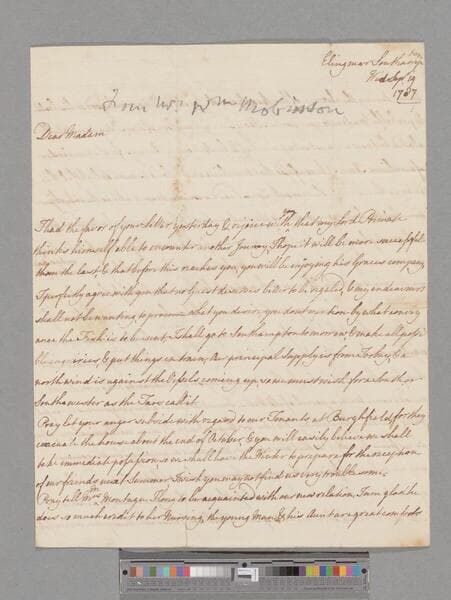 Eling near Southampton
Wed Sep 19
1787
From Mrs Wm Robinson
Dear Madam
I had the favor of your letter yesterday & rejoice with you that my Lord Primate
thinks himself able to encounter another Journey I hope it will be more successful
than the last & that before this reaches you, you will be enjoying his Graces company
I perfectly agree with you that no Guest deserves better to be regaled, & my endeavors
shall not be wanting to procure what you desire, you dont mention by what convey
ance the Fish is to be sent, I shall go to Southampton tomorrow & make all possi
ble enquiries, & put things in train, the principal Supply is from Torbay, & a
north wind is against the Vessels coming up, so we must wish for a South or
Southwester as the Tars call it.
Pray let your anger subside with regard to our Tenants at Burghfield, for they
evacuate the house about the end of October, & you will easily believe we shall
take immediate possession, so we shall have the Winter to prepare for the reception
of our friends next Summer, I wish you may not find us very troublesome.
Pray tell Mrs Montagu I long to be acquainted with our new relation, I am glad he
does so much credit to her Nursing, the young Man & his Aunt are great comforts